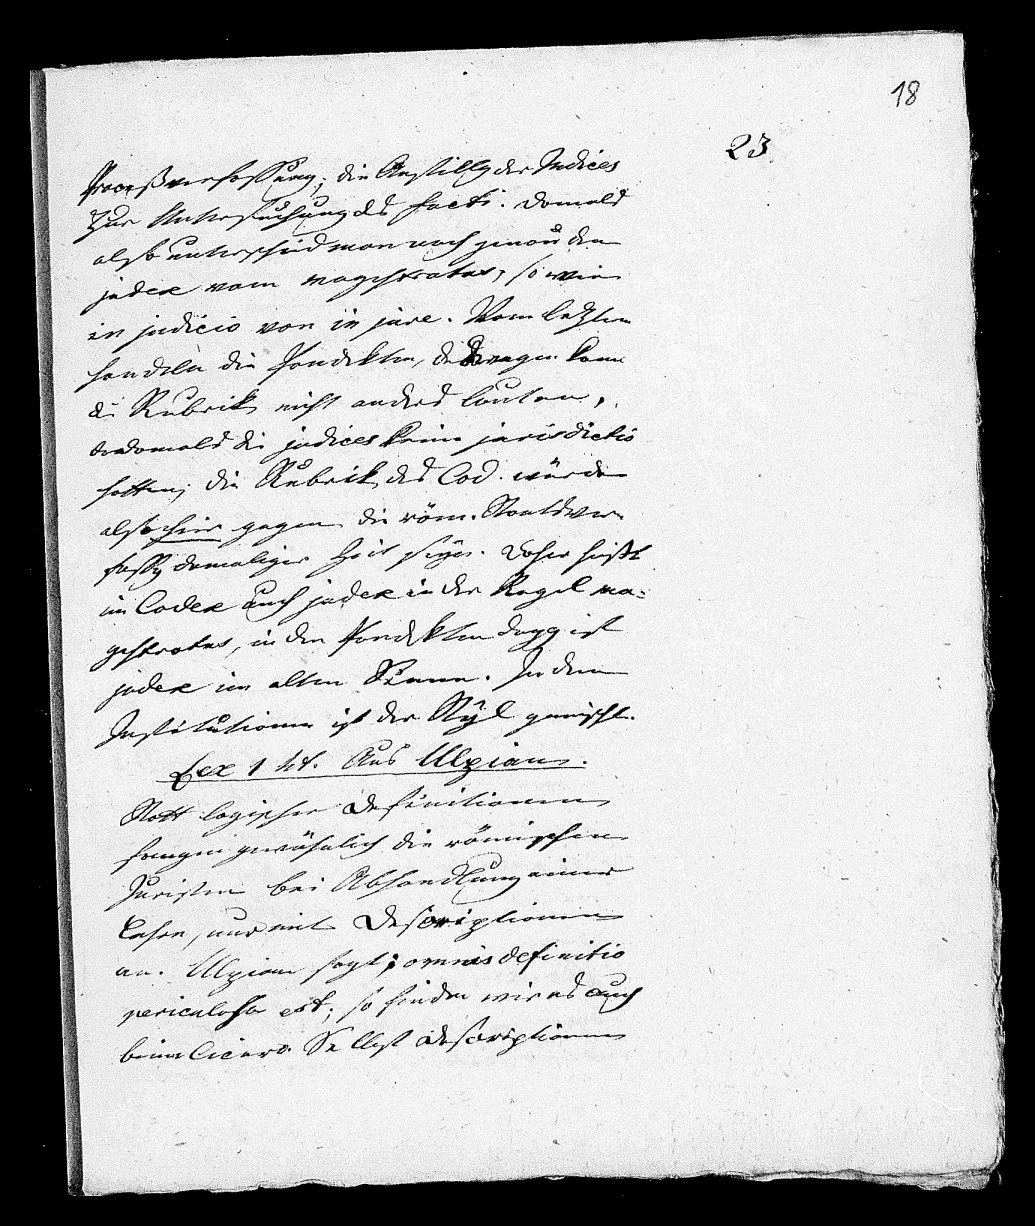 18
23
Proceßverfassung; die Anstellg der Judices
zur Untersuchung des facti. Damals
also unterschied man noch genau den
judex vom magistratus, so wie
in judicio von in jure. Vom letzten
handeln die Pandekten, deswegen kann
die Rubrik nicht anders lauten,
da damals die judices keine jurisdictio
hatten; die Rubrik des Cod. würde
also hier gegen die röm. Staatsver-
fassg damaliger Zeit seyn. Daher heißt
im Codex auch judex in der Regel ma-
gistratus, in den Pandekten dagg ist
judex im alten Sinne. In den
Institutionen ist der Styl gemischt.
Lex 1 h.t. Aus Ulpian.
Statt logischer Definitionen
fangen gewöhnlich die römischen
Juristen bei Abhandlung einer
Lehre, nur mit Descriptionen
an. Ulpian sagt: omnis definitio
periculosa est; so finden wir es auch
beim Cicero. Selbst Descriptionen